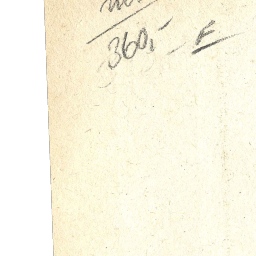 360,- F